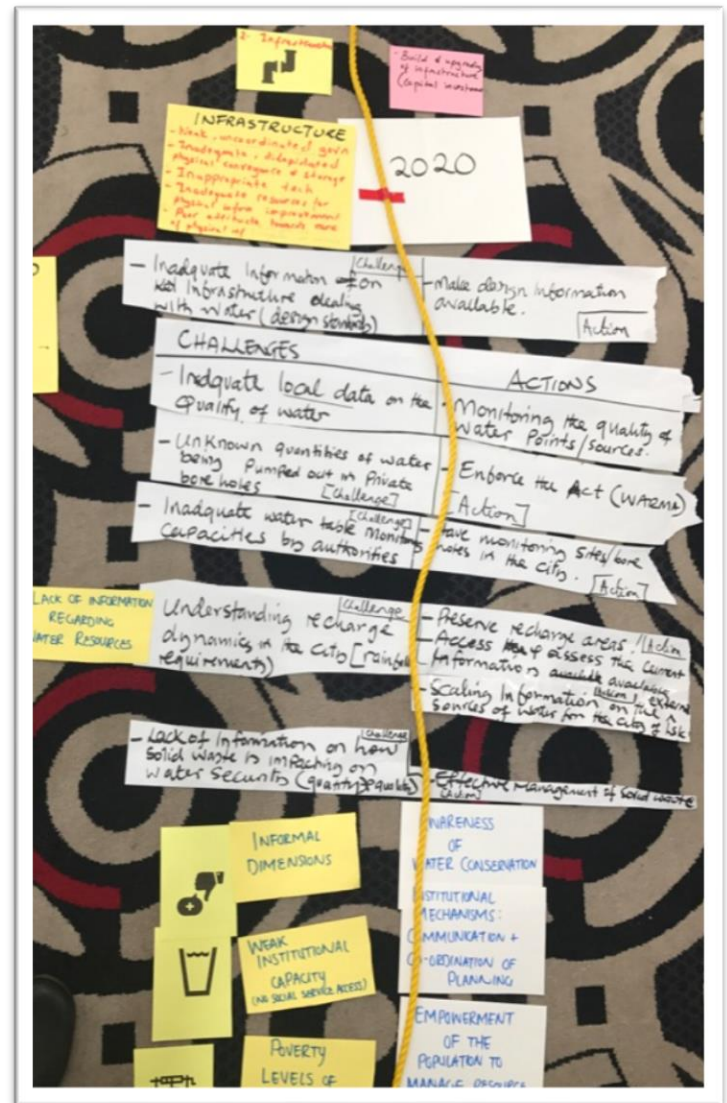 2. Infrastructure
- Build & upgrading
of infrastructure
(capital investment
INFRASTRUCTURE
- Weak, uncoordinated govn
- Inadequate, dilapidated
physical conveyance & storage
- Inappropriate tech
- Inadequate resources for
physical infra improvement
- Poor attitude towards care
of physical inf
2020
[Challenge]
- Inadquate Information on
Infrastructure dealing
with water (design standards)
- Make design information
available.
[Action]
CHALLENGES
ACTIONS
- Inadquate local data on the
Quality of water
- Monitoring the quality of
Water Points/sources.
- Unknown quantities of water
being Pumped out in Private
bore holes
[Challenge]
- Enforce the Act (WARMA)
[Action]
[Challenge]
- Inadquate water table Monitoring
Capacities by authorities
- Have monitoring sites/bore
holes in the city.
[Action]
LACK OF INFORMATION
REGARDING
WATER RESOURCES
[Challenge
Understanding recharge
dynamics in the city [rainfall
requirements)
- Preserve recharge areas. [Action
- Access & assess the current
Information available
[Action]
- Scaling Information on the external
Sources of water for the City of Lsk
[Challenge
- Lack of Information on how
Solid waste is impacting on
Water Security (quantity & quality)
- Effective Management of Solid waste
[Action]
INFORMAL
DIMENSIONS
WEAK
INSTITUTIONAL
CAPACITY
(NO SOCIAL SERVICE ACCESS)
POVERTY
LEVELS OF
AWARENESS
OF
WATER CONSERVATION
INSTITUTIONAL
MECHANISMS:
COMMUNICATION +
CO-ORDINATION OF
PLANNING
EMPOWERMENT
OF THE
POPULATION TO
MANAGE RESOURCE